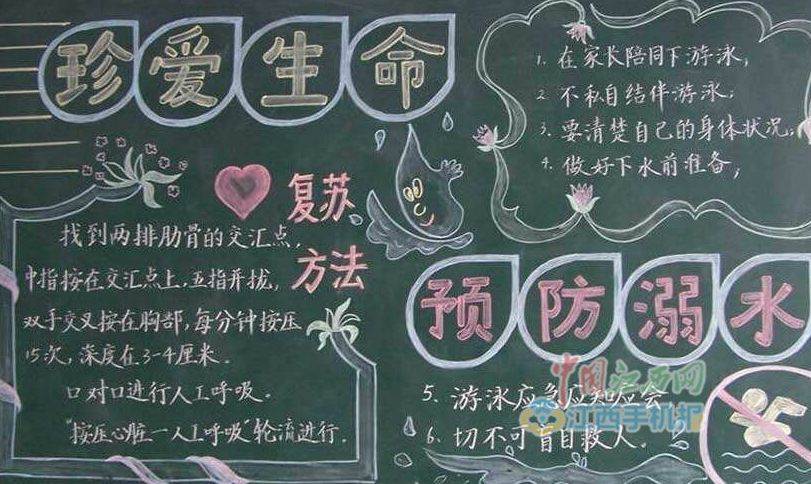 珍爱生命
复苏
方法
找到两排肋骨的交汇点,
中指按在交汇点上,五指并拢,
双手交叉按在胸部,每分钟按压
15次,深度在3-4厘米。
口对口进行人工呼吸。
"按压心脏一人工呼吸"轮流进行.
1. 在家长陪同下游泳;
2. 不私自结伴游泳;
3. 要清楚自己的身体状况;
4. 做好下水前准备,
预防溺水
5. 游泳应急应知应会
6. 切不可盲目救人.
中国江西网
江西手机报